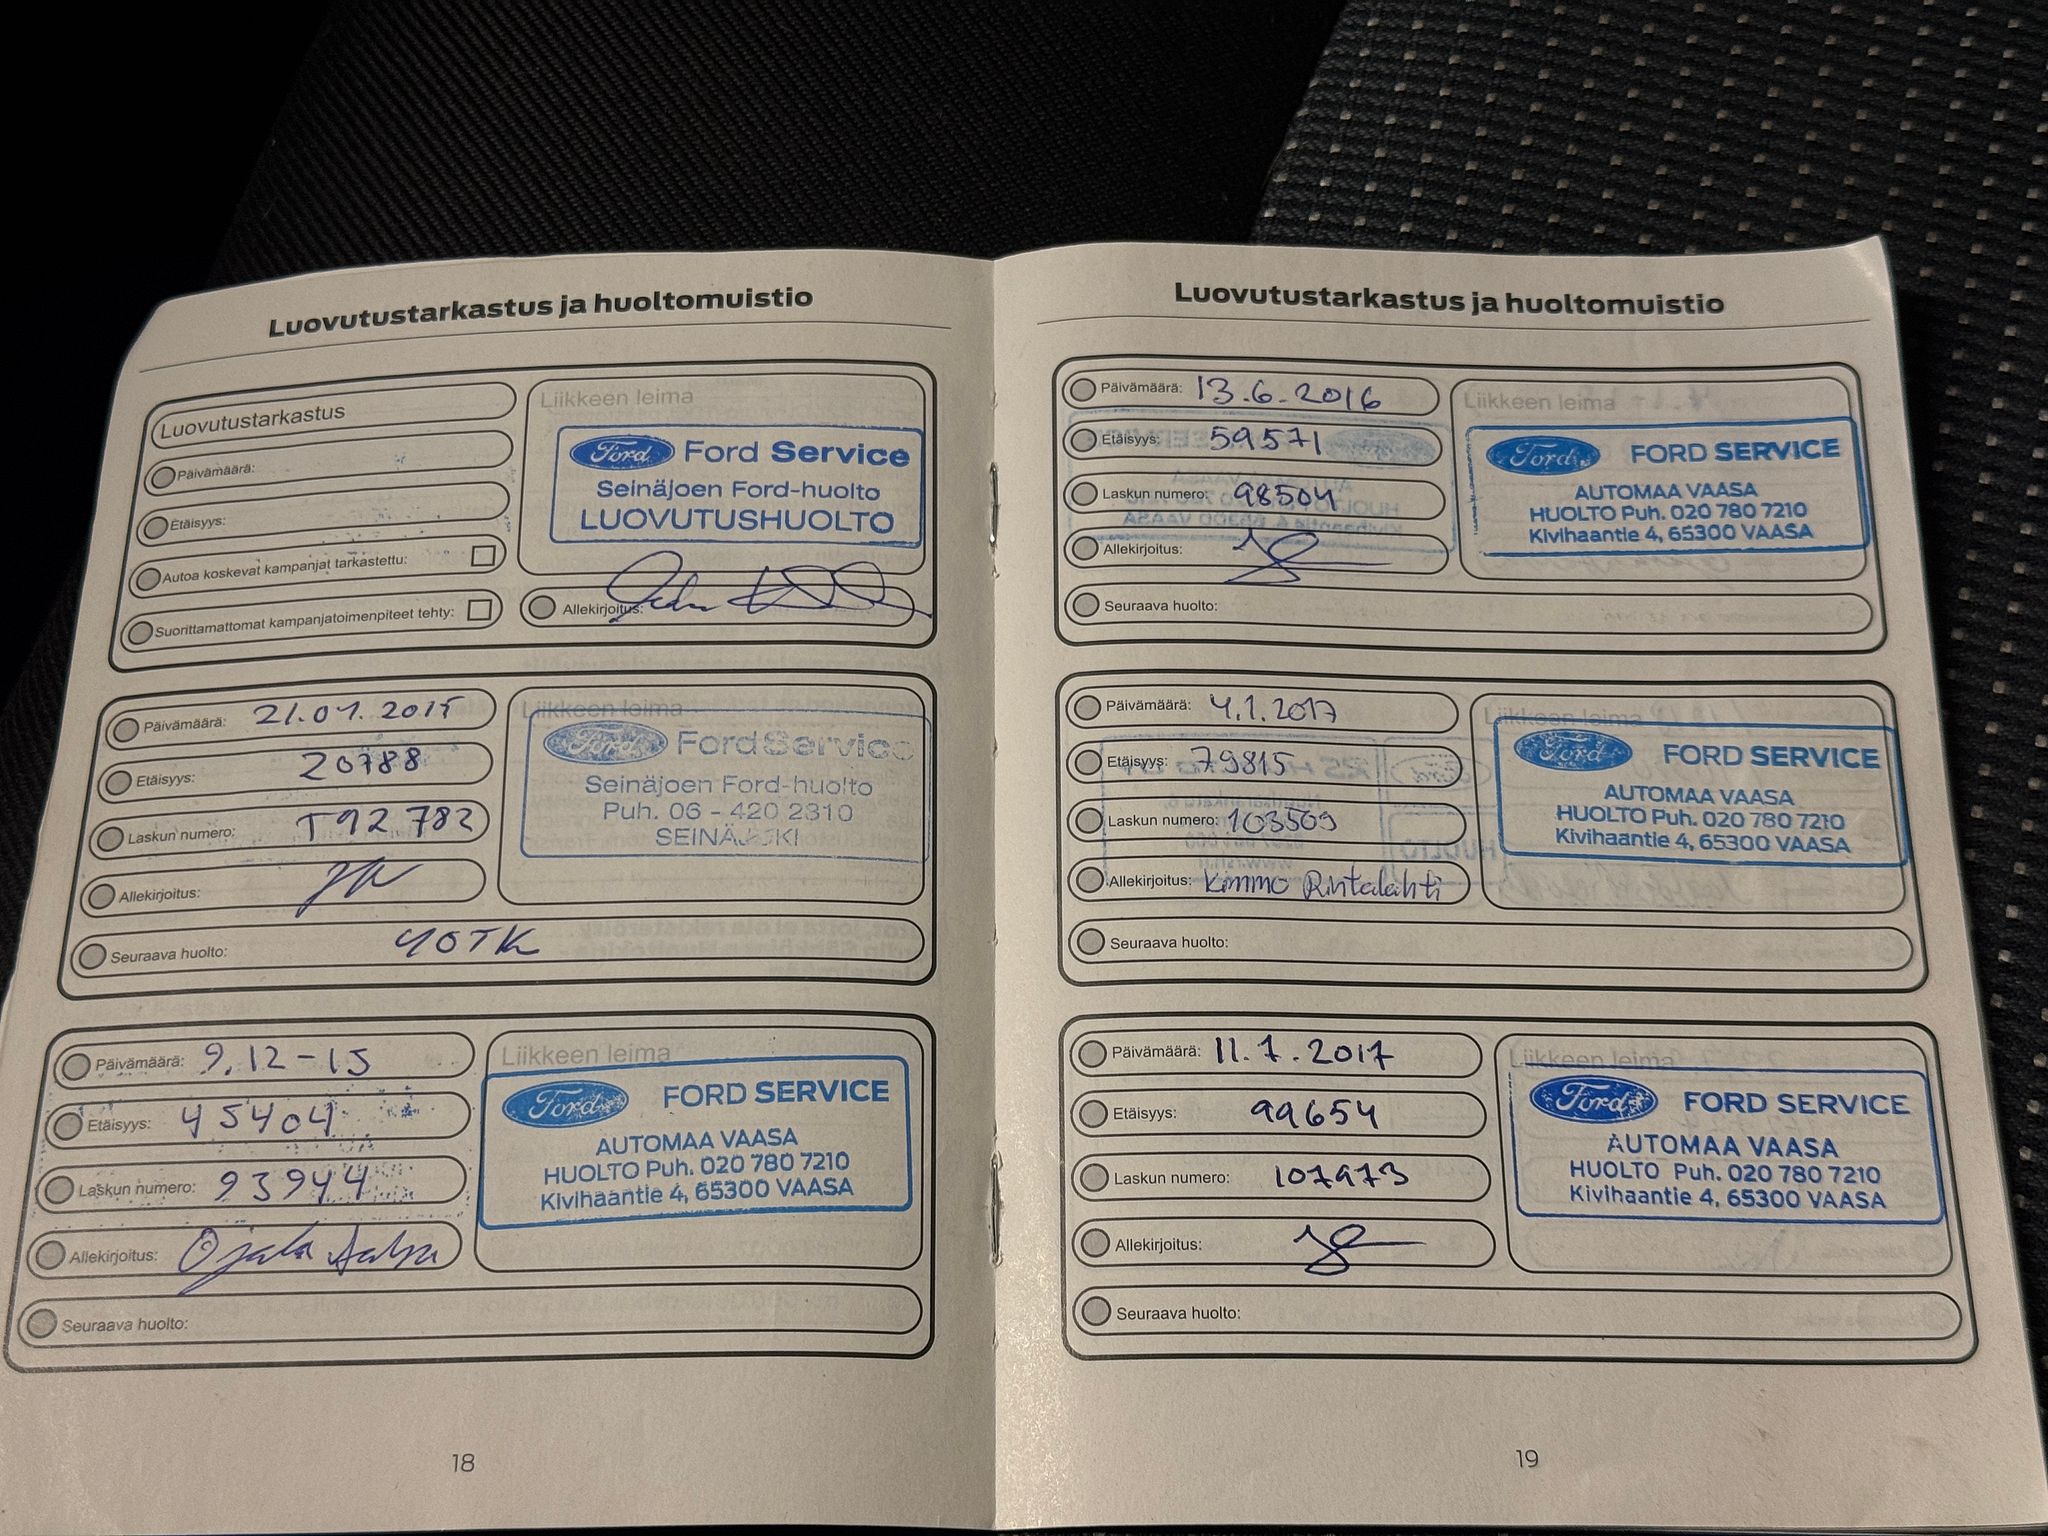 Luovutustarkastus ja huoltomuistio
Luovutustarkastus
Päivämäärä:
Etäisyys:
Autoa koskevat kampanjat tarkastettu:
Suorittamattomat kampanjatoimenpiteet tehty:
Liikkeen leima
Ford Ford Service
Seinäjoen Ford-huolto
LUOVUTUSHUOLTO
Allekirjoitus:
Päivämäärä: 21.01.2015
Etäisyys: 20788
Laskun numero: T92782
Allekirjoitus:
Seuraava huolto: 40TK
Liikkeen leima
Ford Ford Service
Seinäjoen Ford-huolto
Puh. 06 - 420 2310
SEINÄJOKI
Päivämäärä: 9.12-15
Etäisyys: 45404
Laskun numero: 93944
Allekirjoitus: Ojala
Seuraava huolto:
Liikkeen leima
Ford FORD SERVICE
AUTOMAA VAASA
HUOLTO Puh. 020 780 7210
Kivihaantie 4, 65300 VAASA
18
Luovutustarkastus ja huoltomuistio
Päivämäärä: 13.6.2016
Etäisyys: 59571
Laskun numero: 98504
Allekirjoitus:
Seuraava huolto:
Liikkeen leima
Ford FORD SERVICE
AUTOMAA VAASA
HUOLTO Puh. 020 780 7210
Kivihaantie 4, 65300 VAASA
Päivämäärä: 4.1.2017
Etäisyys: 79815
Laskun numero: 103509
Allekirjoitus: Kimmo Rintalahti
Seuraava huolto:
Liikkeen leima
Ford FORD SERVICE
AUTOMAA VAASA
HUOLTO Puh. 020 780 7210
Kivihaantie 4, 65300 VAASA
Päivämäärä: 11.7.2017
Etäisyys: 99654
Laskun numero: 107973
Allekirjoitus:
Seuraava huolto:
Liikkeen leima
Ford FORD SERVICE
AUTOMAA VAASA
HUOLTO Puh. 020 780 7210
Kivihaantie 4, 65300 VAASA
19